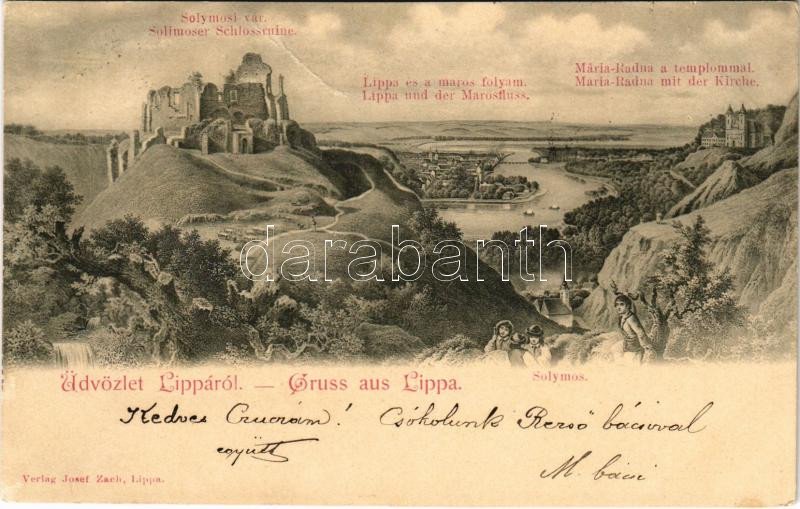 Solymosi vár.
Solimoser Schlossruine.
Lippa és a maros folyam.
Lippa und der Marosfluss.
Mária-Radna a templommal.
Maria-Radna mit der Kirche.
darabanth
Solymos.
Üdvözlet Lippáról. — Gruss aus Lippa.
Kedves Czuczám! Csókolunk Rezső bácsival
együtt
M. bácsi
Verlag Josef Zach, Lippa.